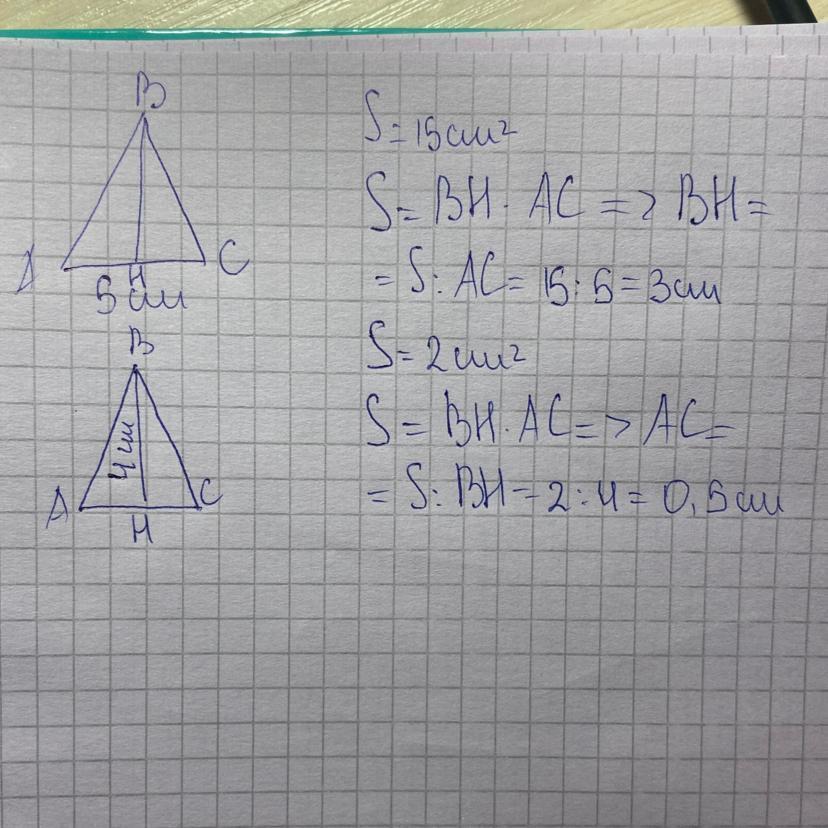 B
A
H
C
5 см
B
4 см
A
H
C
S = 15 см²
S = BH · AC => BH =
= S : AC = 15 : 5 = 3 см
S = 2 см²
S = BH · AC => AC =
= S : BH = 2 : 4 = 0,5 см